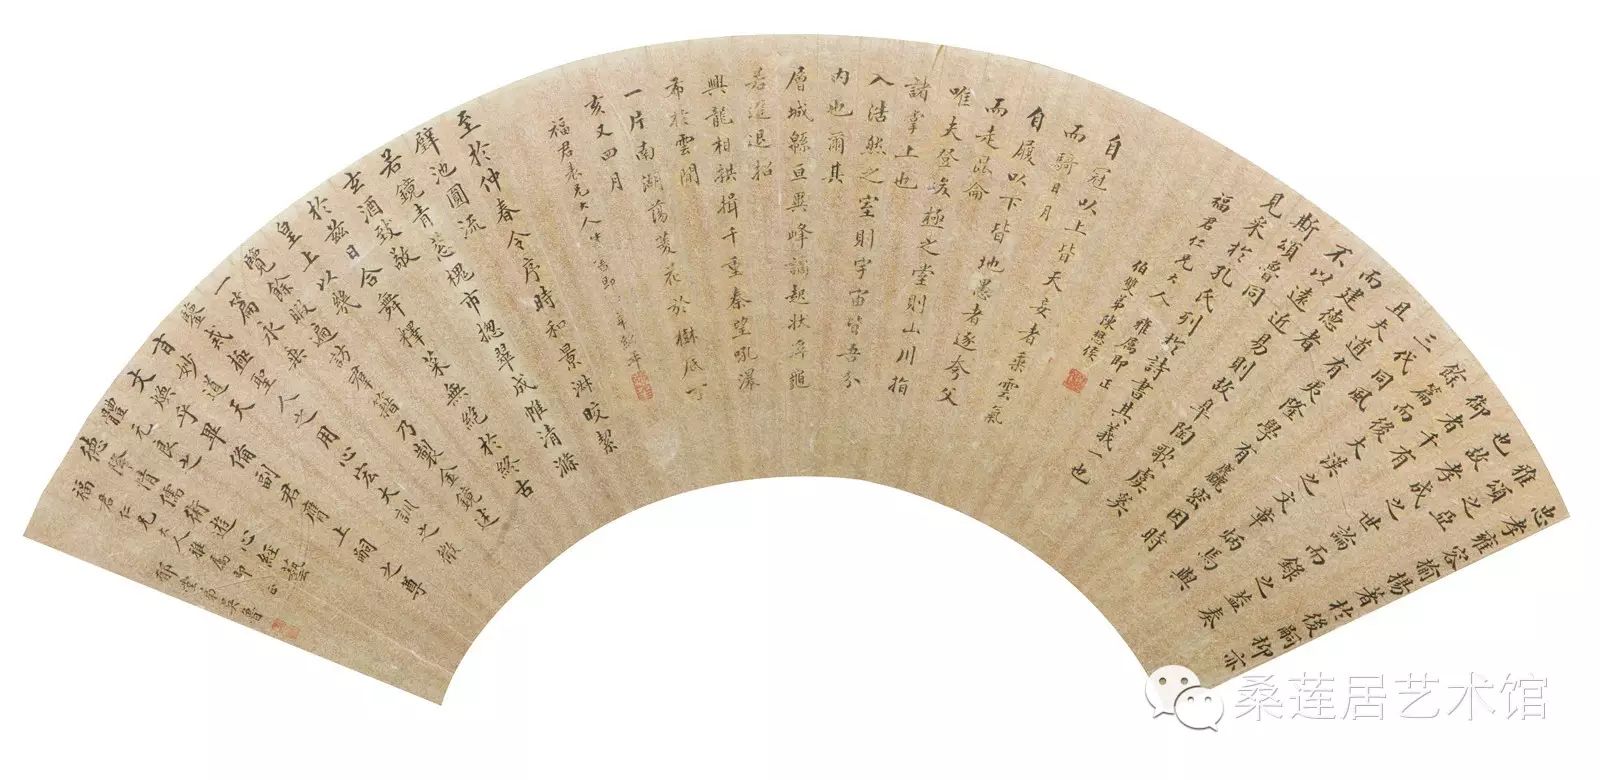 忠孝雍容揄揚著於後嗣抑亦
雅頌之亞
也故孝成之世論而錄之蓋奏
御者千有
餘篇而後大漢之文章炳焉與
三代同風
且夫道有夷隆學有麤密因時
而建德者
不以遠近易則故皋陶歌虞奚
斯頌魯同
見采於孔氏列於詩書其義一也
福君仁兄大人雅属即正
伯雙弟陳懋侯
自冠以上皆天妄者乘雲氣
而騎日月
自履以下皆地愚者逐夸父
而走昆侖
唯夫登峻極之堂則山川指
諸掌上也
入浩然之室則宇宙皆吾分
内也爾其
層城縣亘異峰譎起狀龜
若進退招
興龍相拱揖千重秦望吼瀑
希於雲開
一片南湖蕩菱花於樹底丁
亥又四月
福君表兄大人
至於仲春令序時和景淑皎潔
璧池圓流
若鏡青蔥槐市揔翠成帷清滌
玄酒致敬
於茲日合舞釋菜無絕於終古
皇上以幾
覽餘暇遍訪群籍乃製金鏡述
一篇永垂
鑒戒極聖人之用心宏大訓之微
旨妙道天
文煥乎畢備副君膺上嗣之尊
體元良之
德降情儒術遊心經藝
福君仁兄大人雅屬即正
郁堂弟吳魯
桑莲居艺术馆